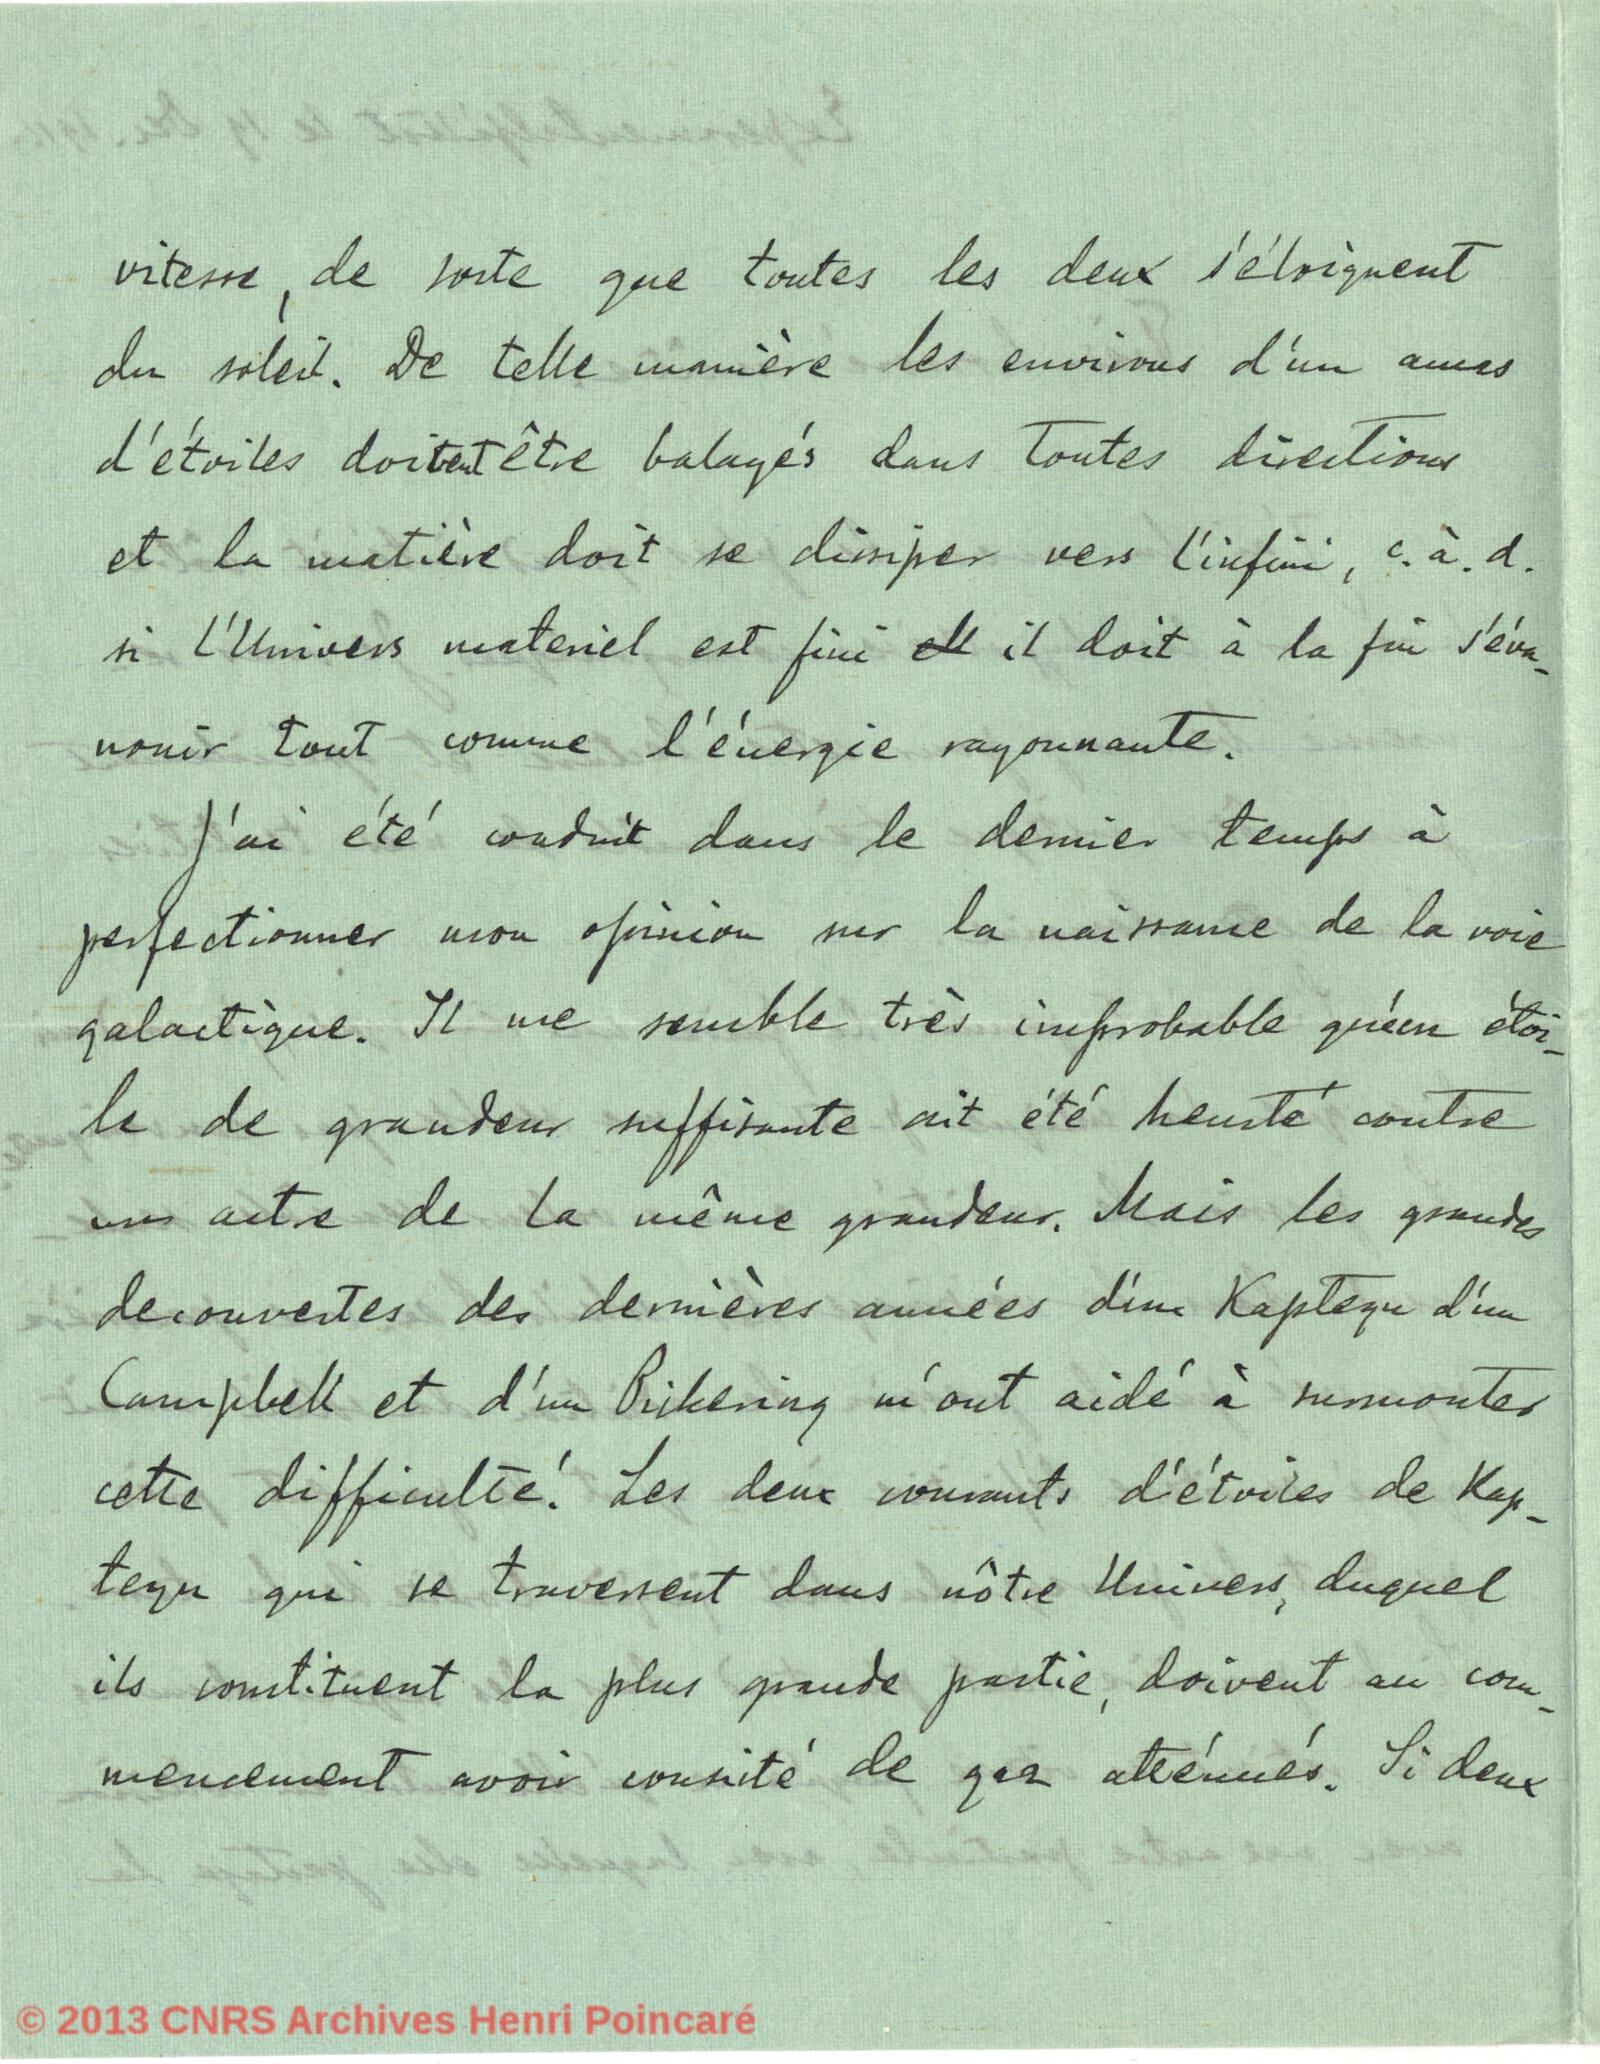 vitesse, de sorte que toutes les deux s'éloignent
du soleil. De telle manière les environs d'un amas
d'étoiles doivent être balayés dans toutes directions
et la matière doit se dissiper vers l'infini, c. à. d.
si l'Univers materiel est fini il doit à la fin s'éva-
nouir tout comme l'énergie rayonnante.
J'ai été conduit dans le dernier temps à
perfectionner mon opinion sur la naissance de la voie
galactique. Il me semble très improbable qu'un étoi-
le de grandeur suffisante ait été heurté contre
un astre de la même grandeur. Mais les grandes
decouvertes des dernières années d'un Kapteyn d'un
Campbell et d'un Pickering m'ont aidé à surmonter
cette difficulté. Les deux courants d'étoiles de Kap-
teyn qui se traversent dans nôtre Univers, duquel
ils constituent la plus grande partie, doivent au com-
mencement avoir consité de gaz atténués. Si deux
© 2013 CNRS Archives Henri Poincaré